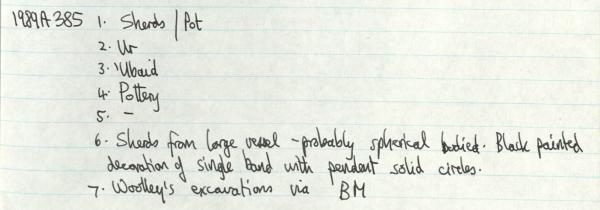 1989A385 1. Sherds / Pot
2. Ur
3. 'Ubaid
4. Pottery
5. -
6. Sherds from large vessel - probably spherical bodied. Black painted
decoration of single band with pendent solid circles.
7. Woolley's excavations via BM